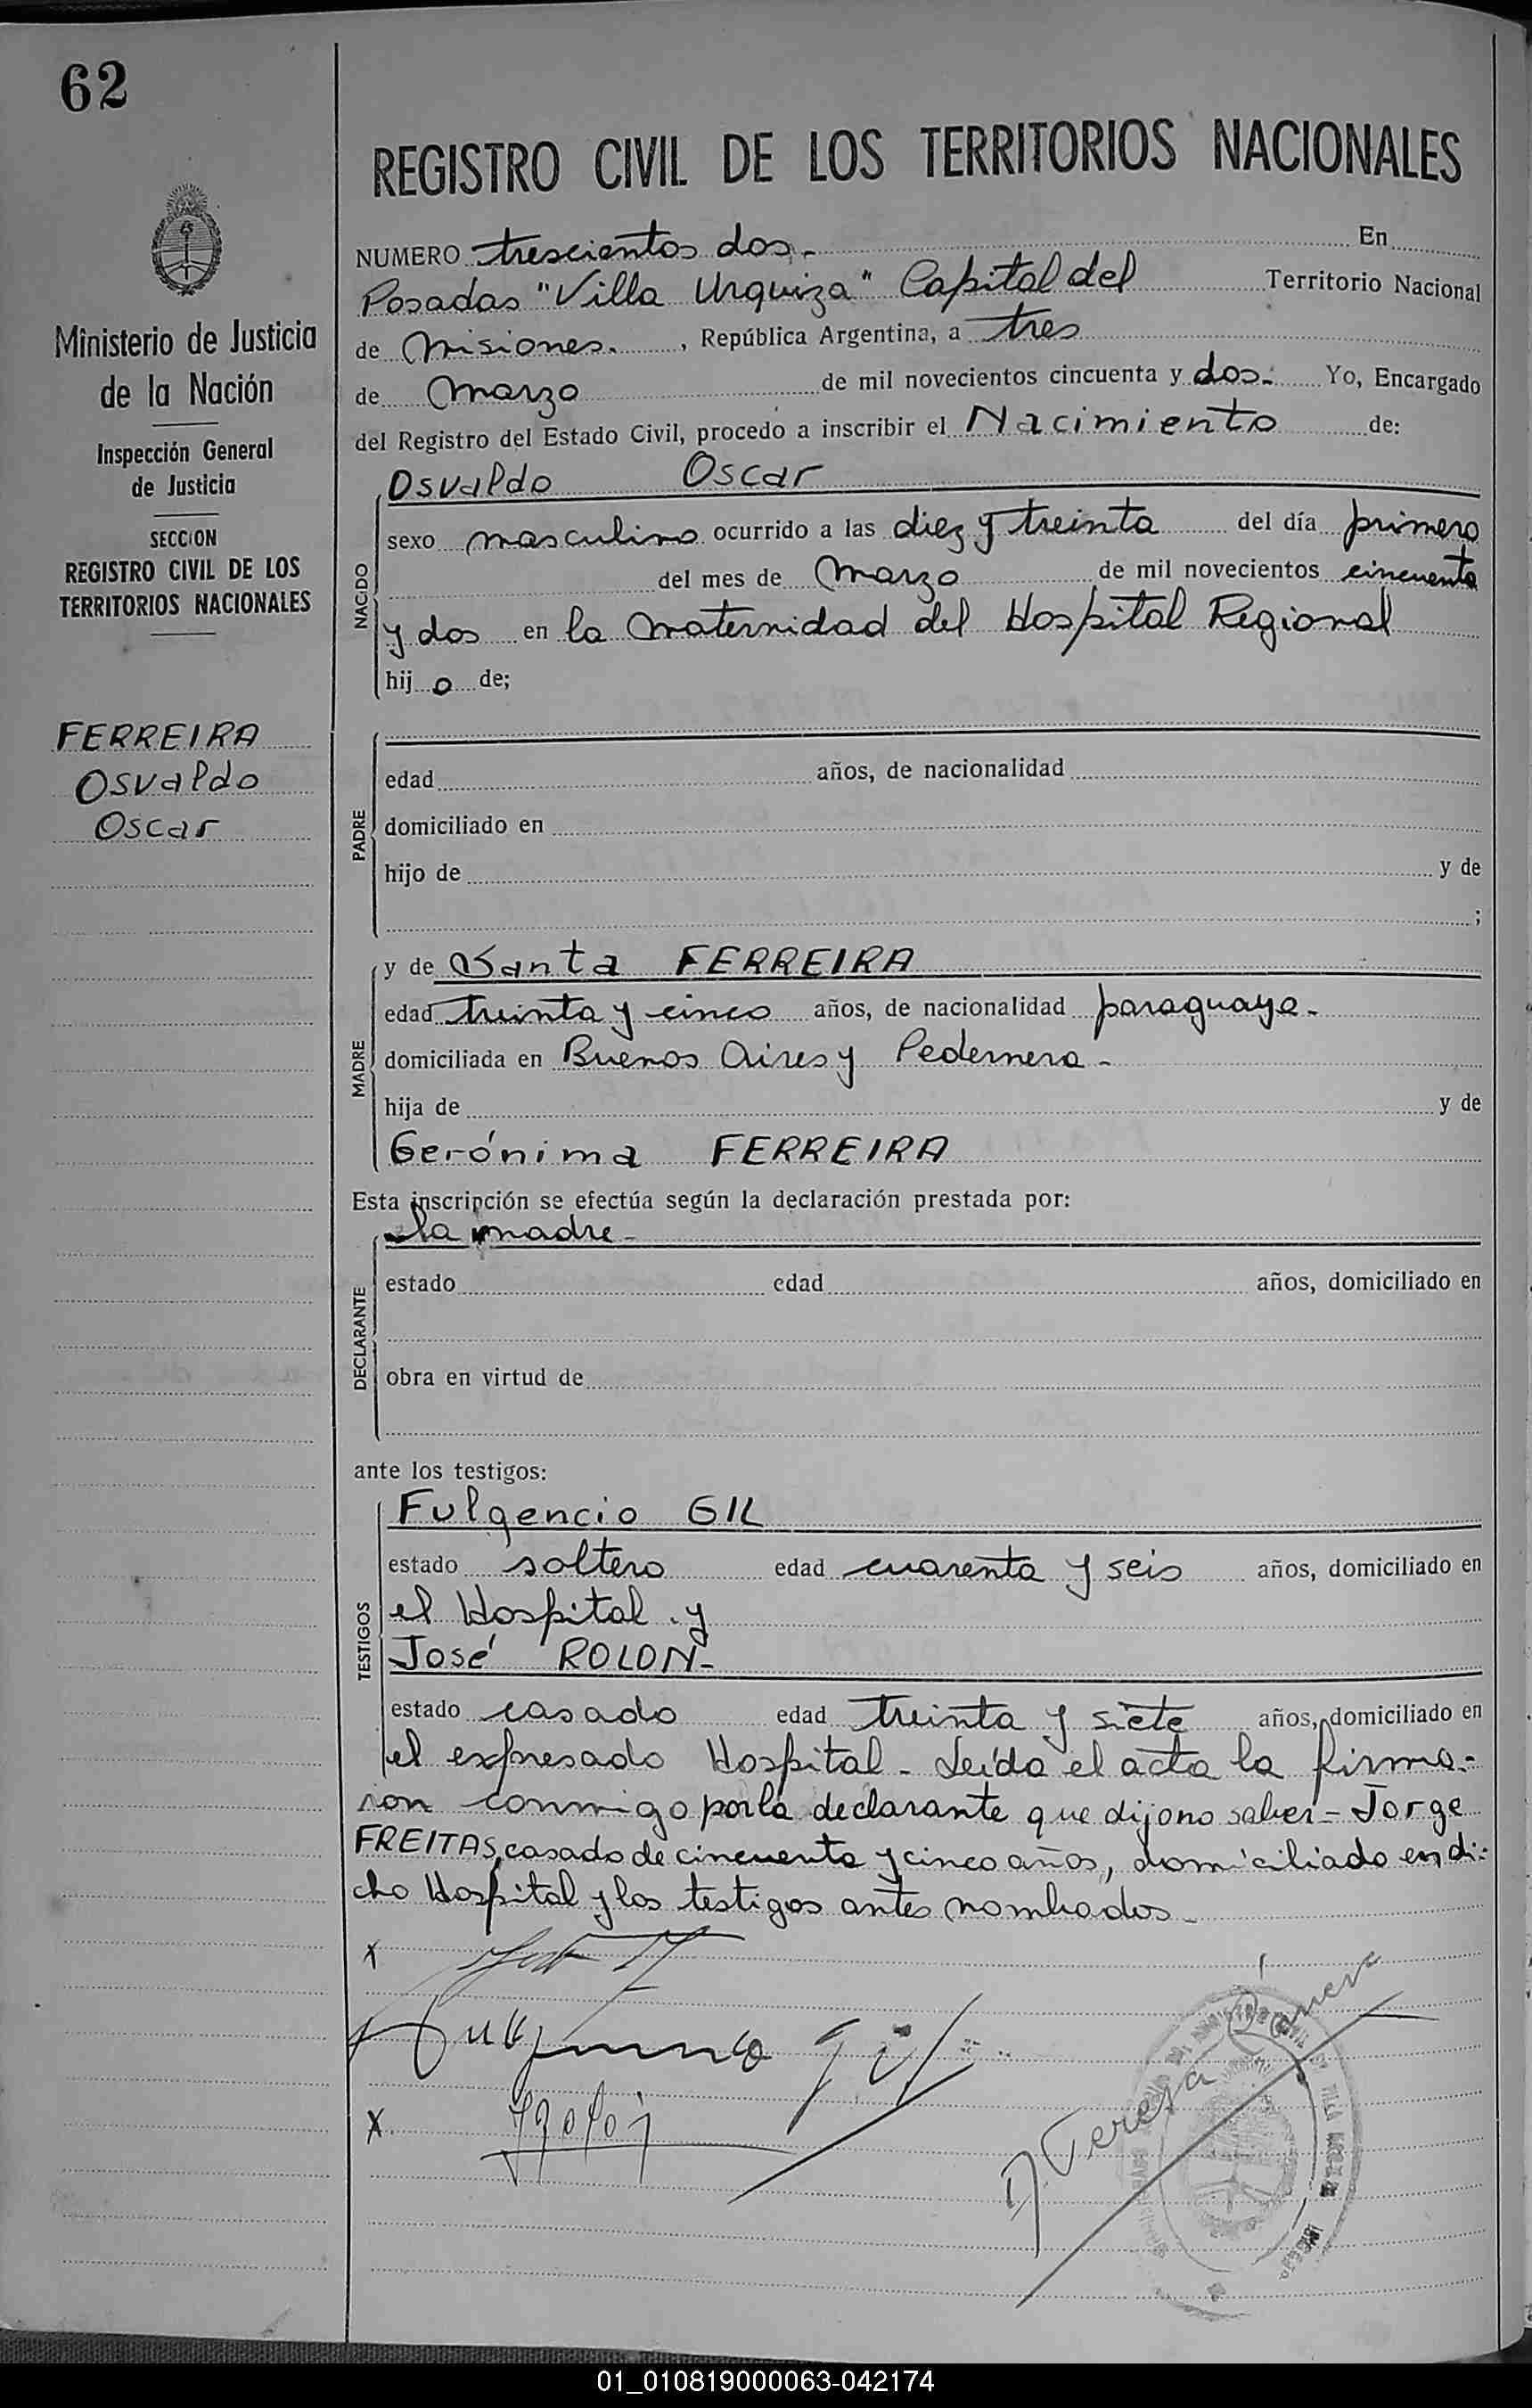 62
REGISTRO CIVIL DE LOS TERRITORIOS NACIONALES
Ministerio de Justicia
de la Nación
Inspección General
de Justicia
SECCION
REGISTRO CIVIL DE LOS
TERRITORIOS NACIONALES
FERREIRA
Osvaldo
Oscar
NUMERO trescientos dos.- En
Posadas "Villa Urquiza" Capital del Territorio Nacional
de Misiones. , República Argentina, a tres
de Marzo de mil novecientos cincuenta y dos.- Yo, Encargado
del Registro del Estado Civil, procedo a inscribir el Nacimiento de:
NACIDO
Osvaldo Oscar
sexo masculino ocurrido a las diez y treinta del día primero
del mes de Marzo de mil novecientos cincuenta
y dos en la Maternidad del Hospital Regional
hij o de;
PADRE
edad años, de nacionalidad
domiciliado en
hijo de y de
;
MADRE
y de Santa FERREIRA
edad treinta y cinco años, de nacionalidad paraguaya.-
domiciliada en Buenos Aires y Pedernera -
hija de y de
Gerónima FERREIRA
Esta inscripción se efectúa según la declaración prestada por:
DECLARANTE
la madre -
estado edad años, domiciliado en
obra en virtud de
ante los testigos:
TESTIGOS
Fulgencio GIL
estado soltero edad cuarenta y seis años, domiciliado en
el Hospital . y
José ROLON-
estado casado edad treinta y siete años, domiciliado en
el expresado Hospital - Leída el acta la firma-
ron conmigo por la declarante que dijo no saber - Jorge
FREITAS, casado de cincuenta y cinco años, domiciliado en di-
cho Hospital y los testigos antes nombrados -
x
x
01_010819000063-042174